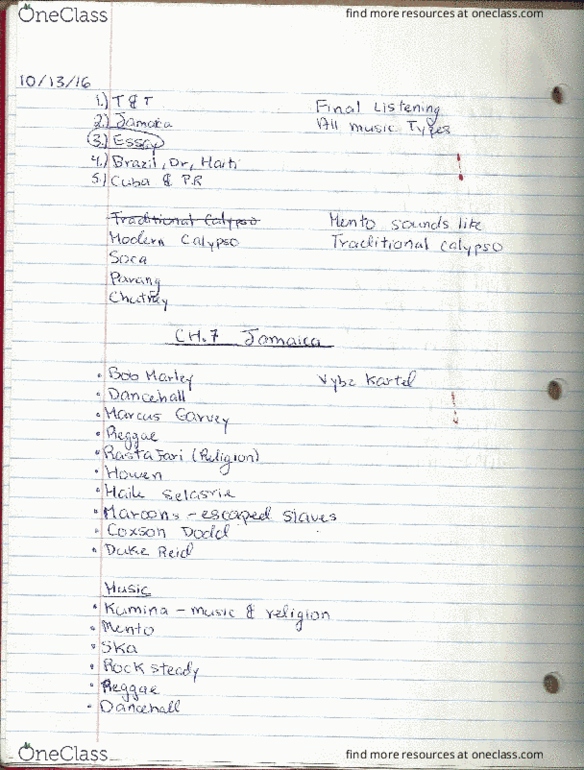 OneClass
find more resources at oneclass.com
10/13/16
1.) T & T
Final Listening
2.) Jamaica
All music Types
3.) Essay
4.) Brazil, Dr, Haiti
5.) Cuba & P.R
Traditional Calypso
Mento sounds like
Modern Calypso
Traditional calypso
Soca
Parang
Chutney
CH.7 Jamaica
• Bob Marley
Vybz Kartel
• Dancehall
• Marcus Garvey
• Reggae
• Rastafari (Religion)
• Howen
• Haile Selassie
• Maroons - escaped slaves
• Coxson Dodd
• Duke Reid
Music
• Kumina - music & religion
• Mento
• Ska
• Rock steady
• Reggae
• Dancehall
OneClass
find more resources at oneclass.com